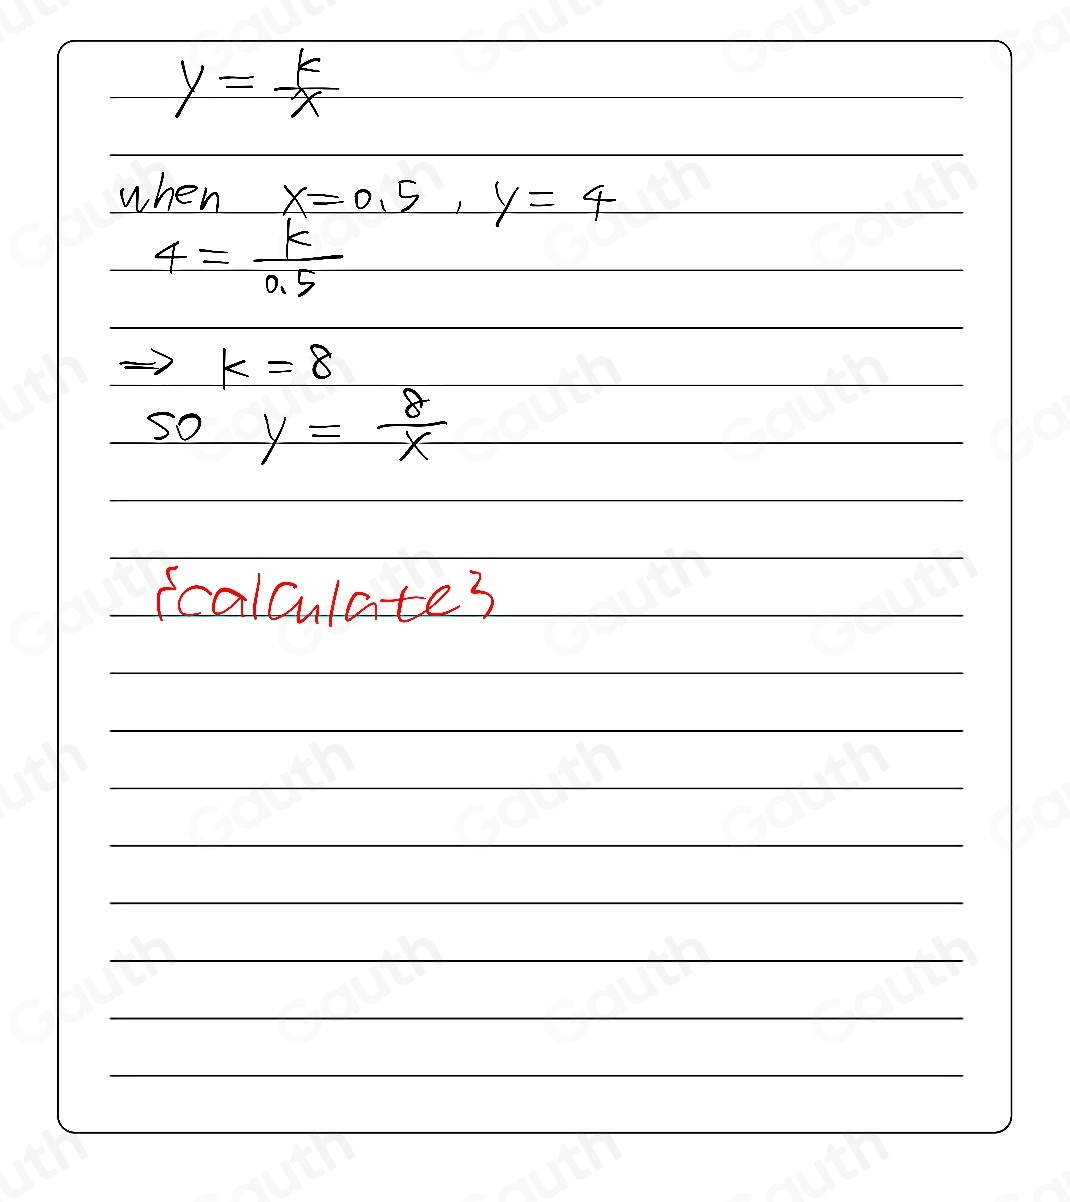 y = k/x
when x=0.5, y= 4
4 = k/0.5
⇒ k = 8
so y = 8/x
{calculate}